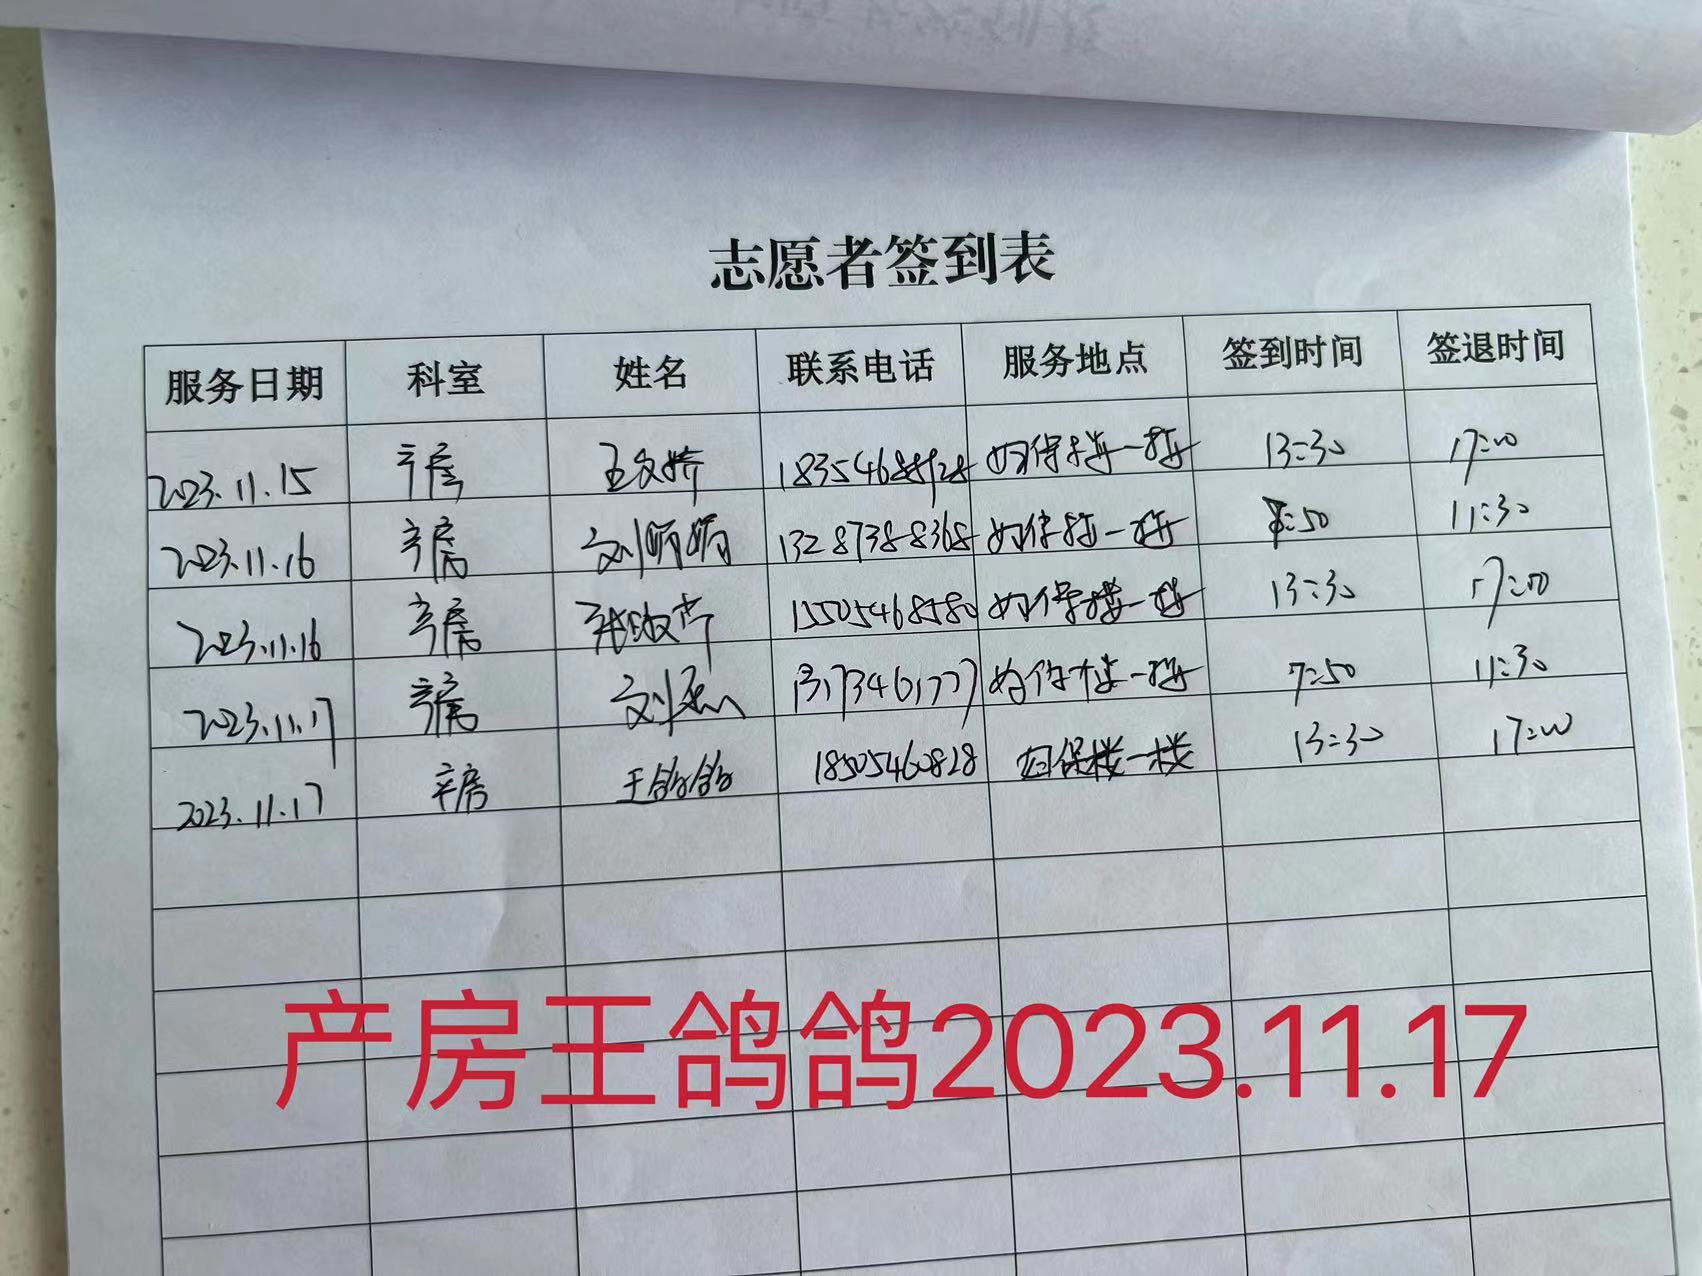 志愿者签到表
服务日期 科室 姓名 联系电话 服务地点 签到时间 签退时间
2023.11.15 产房 王文娇 妇保楼一楼 13:30 17:00
2023.11.16 产房 刘娟娟 13287388368 妇保楼一楼 7:50 11:30
2023.11.16 产房 张 15505468580 妇保楼一楼 13:30 17:00
2023.11.17 产房 刘 13173461777 妇保楼一楼 7:50 11:30
2023.11.17 产房 王鸽鸽 18505460828 妇保楼一楼 13:30 17:00
产房王鸽鸽2023.11.17